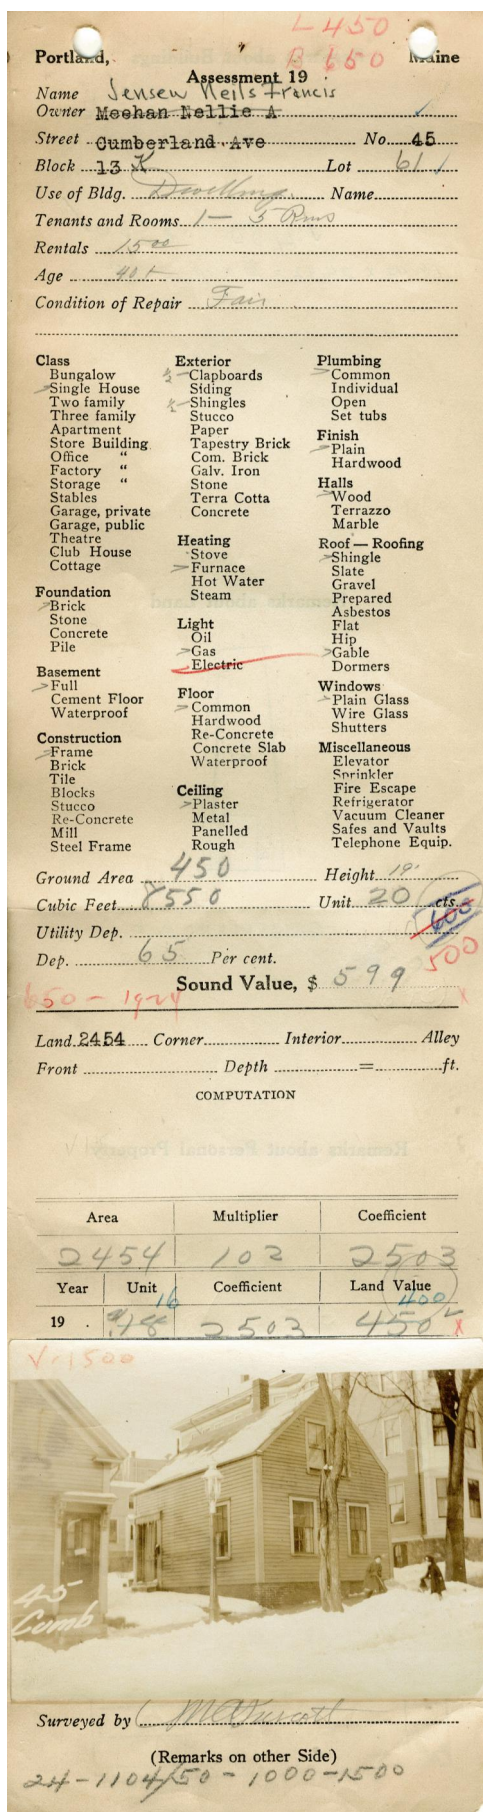 L 450
B 650
Portland, Maine
Assessment 19
Name Jensen Neils Francis
Owner Meehan Nellie A
Street Cumberland Ave No. 45
Block 13 K Lot 61
Use of Bldg. Dwelling Name
Tenants and Rooms 1 - 5 Rms
Rentals 15 00
Age 40 +
Condition of Repair Fair
Class
Bungalow
Single House
Two family
Three family
Apartment
Store Building
Office "
Factory "
Storage "
Stables
Garage, private
Garage, public
Theatre
Club House
Cottage
Foundation
Brick
Stone
Concrete
Pile
Basement
Full
Cement Floor
Waterproof
Construction
Frame
Brick
Tile
Blocks
Stucco
Re-Concrete
Mill
Steel Frame
Exterior
½ Clapboards
Siding
½ Shingles
Stucco
Paper
Tapestry Brick
Com. Brick
Galv. Iron
Stone
Terra Cotta
Concrete
Heating
Stove
Furnace
Hot Water
Steam
Light
Oil
Gas
Electric
Floor
Common
Hardwood
Re-Concrete
Concrete Slab
Waterproof
Ceiling
Plaster
Metal
Panelled
Rough
Plumbing
Common
Individual
Open
Set tubs
Finish
Plain
Hardwood
Halls
Wood
Terrazzo
Marble
Roof — Roofing
Shingle
Slate
Gravel
Prepared
Asbestos
Flat
Hip
Gable
Dormers
Windows
Plain Glass
Wire Glass
Shutters
Miscellaneous
Elevator
Sprinkler
Fire Escape
Refrigerator
Vacuum Cleaner
Safes and Vaults
Telephone Equip.
Ground Area 450 Height 19'
Cubic Feet 8550 Unit 20 cts.
600
Utility Dep.
Dep. 65 Per cent. 500
Sound Value, $ 599
650 - 1924
Land 2454 Corner Interior Alley
Front Depth = ft.
COMPUTATION
Area Multiplier Coefficient
2454 102 2503
Year Unit Coefficient Land Value
16 400
19 18 2503 450
1500
45
Cumb
Surveyed by
(Remarks on other Side)
24-1104/50 - 1000-1500